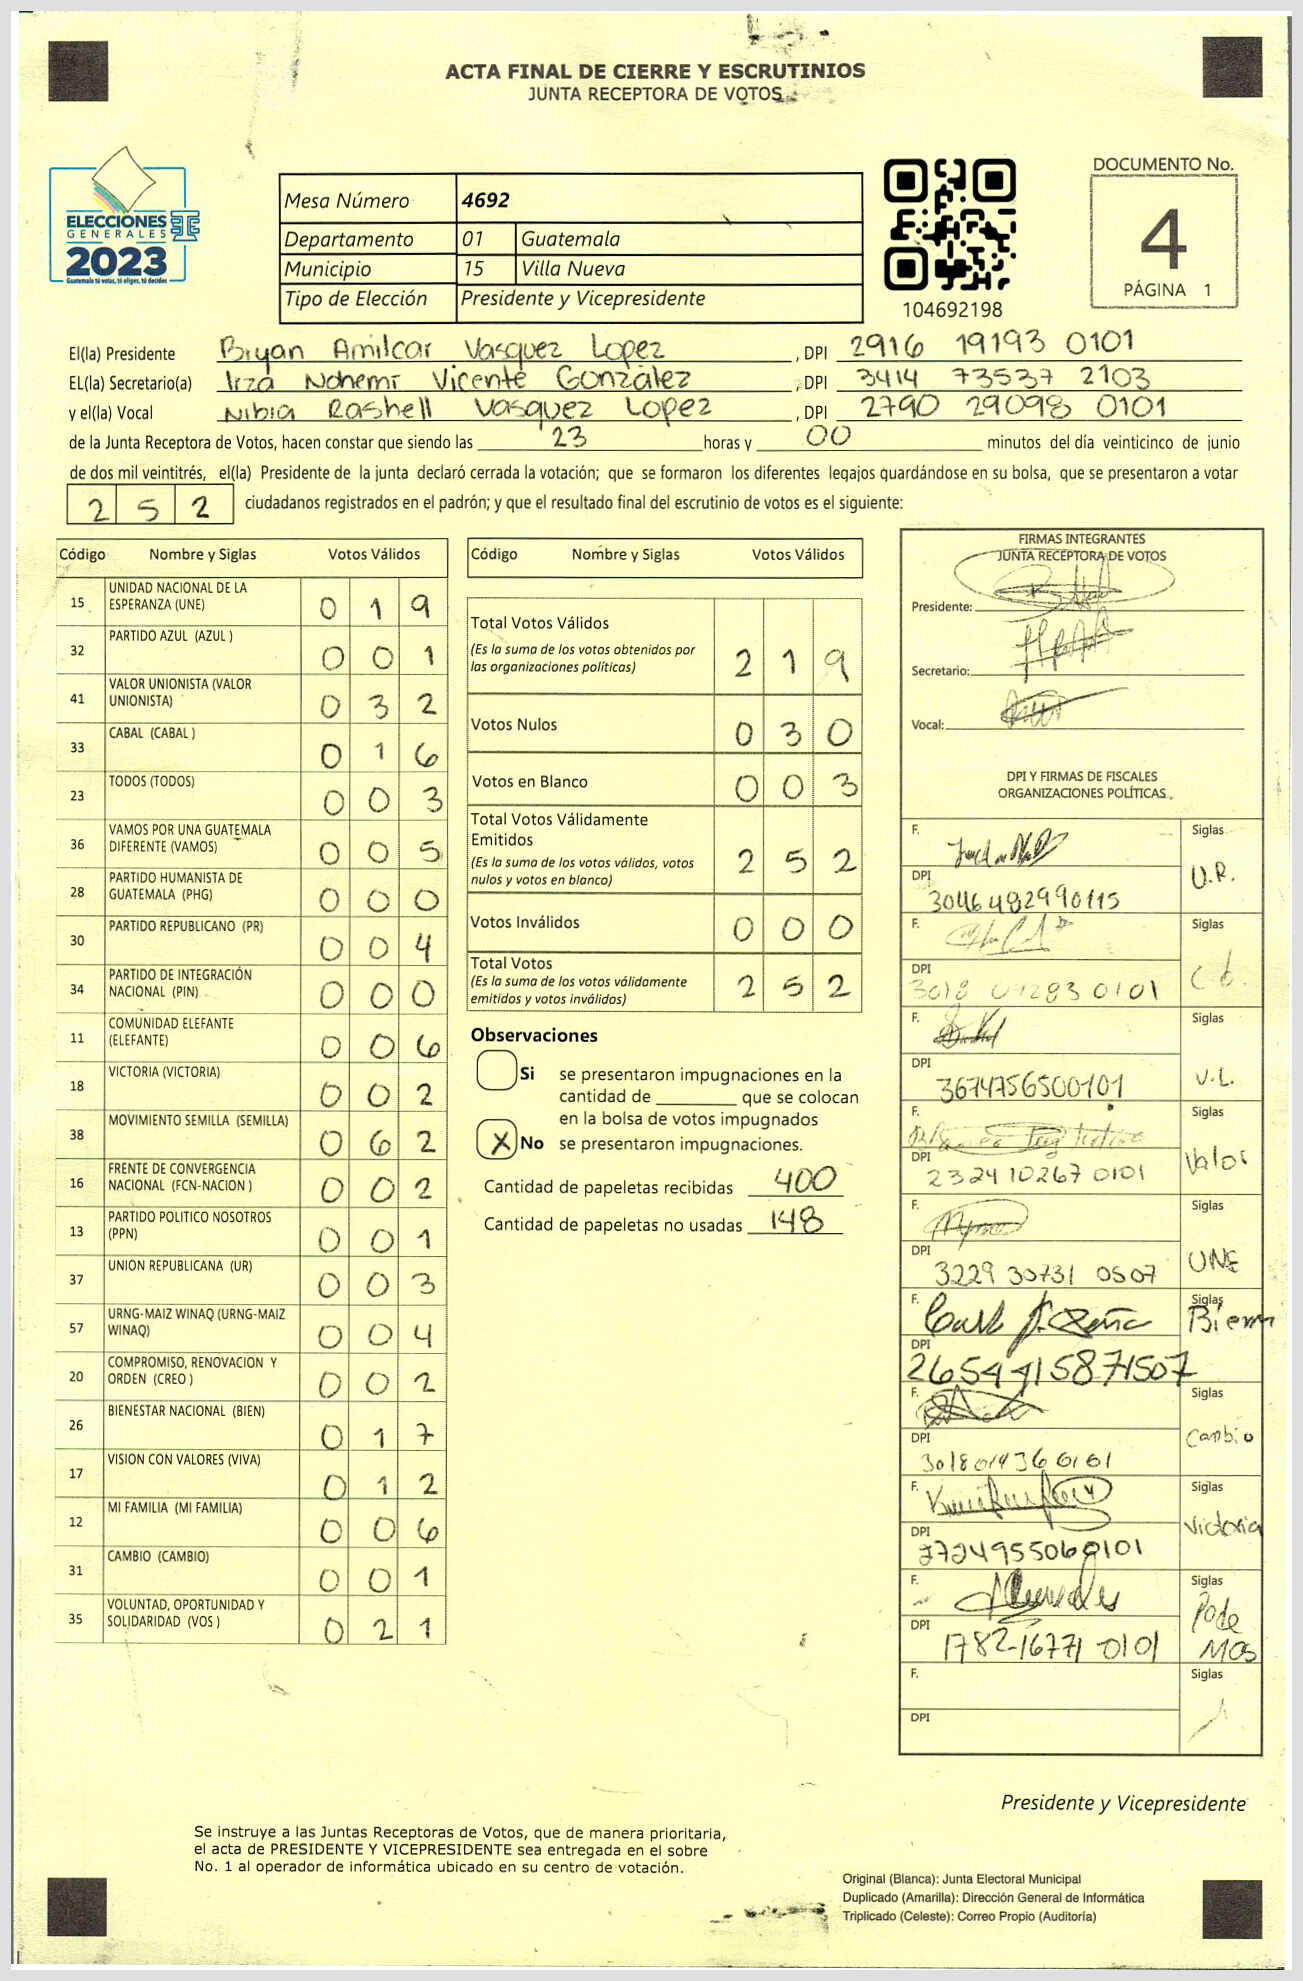 ACTA FINAL DE CIERRE Y ESCRUTINIOS
JUNTA RECEPTORA DE VOTOS
ELECCIONES
GENERALES
2023
Guatemala tú votas, tú eliges, tú decides
Mesa Número 4692
Departamento 01 Guatemala
Municipio 15 Villa Nueva
Tipo de Elección Presidente y Vicepresidente
104692198
DOCUMENTO No.
4
PÁGINA 1
El(la) Presidente Bryan Amilcar Vasquez Lopez , DPI 2916 19193 0101
EL(la) Secretario(a) Irza Nohemi Vicente González , DPI 3414 73537 2103
y el(la) Vocal Nibia Rashell Vasquez Lopez , DPI 2790 29098 0101
de la Junta Receptora de Votos, hacen constar que siendo las 23 horas y 00 minutos del día veinticinco de junio
de dos mil veintitrés, el(la) Presidente de la junta declaró cerrada la votación; que se formaron los diferentes legajos quardándose en su bolsa, que se presentaron a votar
2 5 2 ciudadanos registrados en el padrón; y que el resultado final del escrutinio de votos es el siguiente:
Código Nombre y Siglas Votos Válidos
15 UNIDAD NACIONAL DE LA ESPERANZA (UNE) 0 1 9
32 PARTIDO AZUL (AZUL ) 0 0 1
41 VALOR UNIONISTA (VALOR UNIONISTA) 0 3 2
33 CABAL (CABAL ) 0 1 6
23 TODOS (TODOS) 0 0 3
36 VAMOS POR UNA GUATEMALA DIFERENTE (VAMOS) 0 0 5
28 PARTIDO HUMANISTA DE GUATEMALA (PHG) 0 0 0
30 PARTIDO REPUBLICANO (PR) 0 0 4
34 PARTIDO DE INTEGRACIÓN NACIONAL (PIN) 0 0 0
11 COMUNIDAD ELEFANTE (ELEFANTE) 0 0 6
18 VICTORIA (VICTORIA) 0 0 2
38 MOVIMIENTO SEMILLA (SEMILLA) 0 6 2
16 FRENTE DE CONVERGENCIA NACIONAL (FCN-NACION ) 0 0 2
13 PARTIDO POLITICO NOSOTROS (PPN) 0 0 1
37 UNION REPUBLICANA (UR) 0 0 3
57 URNG-MAIZ WINAQ (URNG-MAIZ WINAQ) 0 0 4
20 COMPROMISO, RENOVACION Y ORDEN (CREO ) 0 0 2
26 BIENESTAR NACIONAL (BIEN) 0 1 7
17 VISION CON VALORES (VIVA) 0 1 2
12 MI FAMILIA (MI FAMILIA) 0 0 6
31 CAMBIO (CAMBIO) 0 0 1
35 VOLUNTAD, OPORTUNIDAD Y SOLIDARIDAD (VOS ) 0 2 1
Código Nombre y Siglas Votos Válidos
Total Votos Válidos 2 1 9
(Es la suma de los votos obtenidos por
las organizaciones políticas)
Votos Nulos 0 3 0
Votos en Blanco 0 0 3
Total Votos Válidamente
Emitidos 2 5 2
(Es la suma de los votos válidos, votos
nulos y votos en blanco)
Votos Inválidos 0 0 0
Total Votos 2 5 2
(Es la suma de los votos válidamente
emitidos y votos inválidos)
Observaciones
Si se presentaron impugnaciones en la
cantidad de ________ que se colocan
en la bolsa de votos impugnados
X No se presentaron impugnaciones.
Cantidad de papeletas recibidas 400
Cantidad de papeletas no usadas 148
FIRMAS INTEGRANTES
JUNTA RECEPTORA DE VOTOS
Presidente:
Secretario:
Vocal:
DPI Y FIRMAS DE FISCALES
ORGANIZACIONES POLÍTICAS
F. Siglas U.R.
DPI 3046482990115
F. Siglas
DPI
F. Siglas V.L.
DPI 3674756500101
F. Siglas Valor
DPI 2324 10267 0101
F. Siglas UNE
DPI 3229 30731 0507
F. Siglas Bien
DPI 2654915871507
F. Siglas Cambio
DPI
F. Siglas Victoria
DPI 2724955060101
F. Siglas Pode Mos
DPI 1782 16771 0101
F. Siglas
DPI
Presidente y Vicepresidente
Se instruye a las Juntas Receptoras de Votos, que de manera prioritaria,
el acta de PRESIDENTE Y VICEPRESIDENTE sea entregada en el sobre
No. 1 al operador de informática ubicado en su centro de votación.
Original (Blanca): Junta Electoral Municipal
Duplicado (Amarilla): Dirección General de Informática
Triplicado (Celeste): Correo Propio (Auditoría)